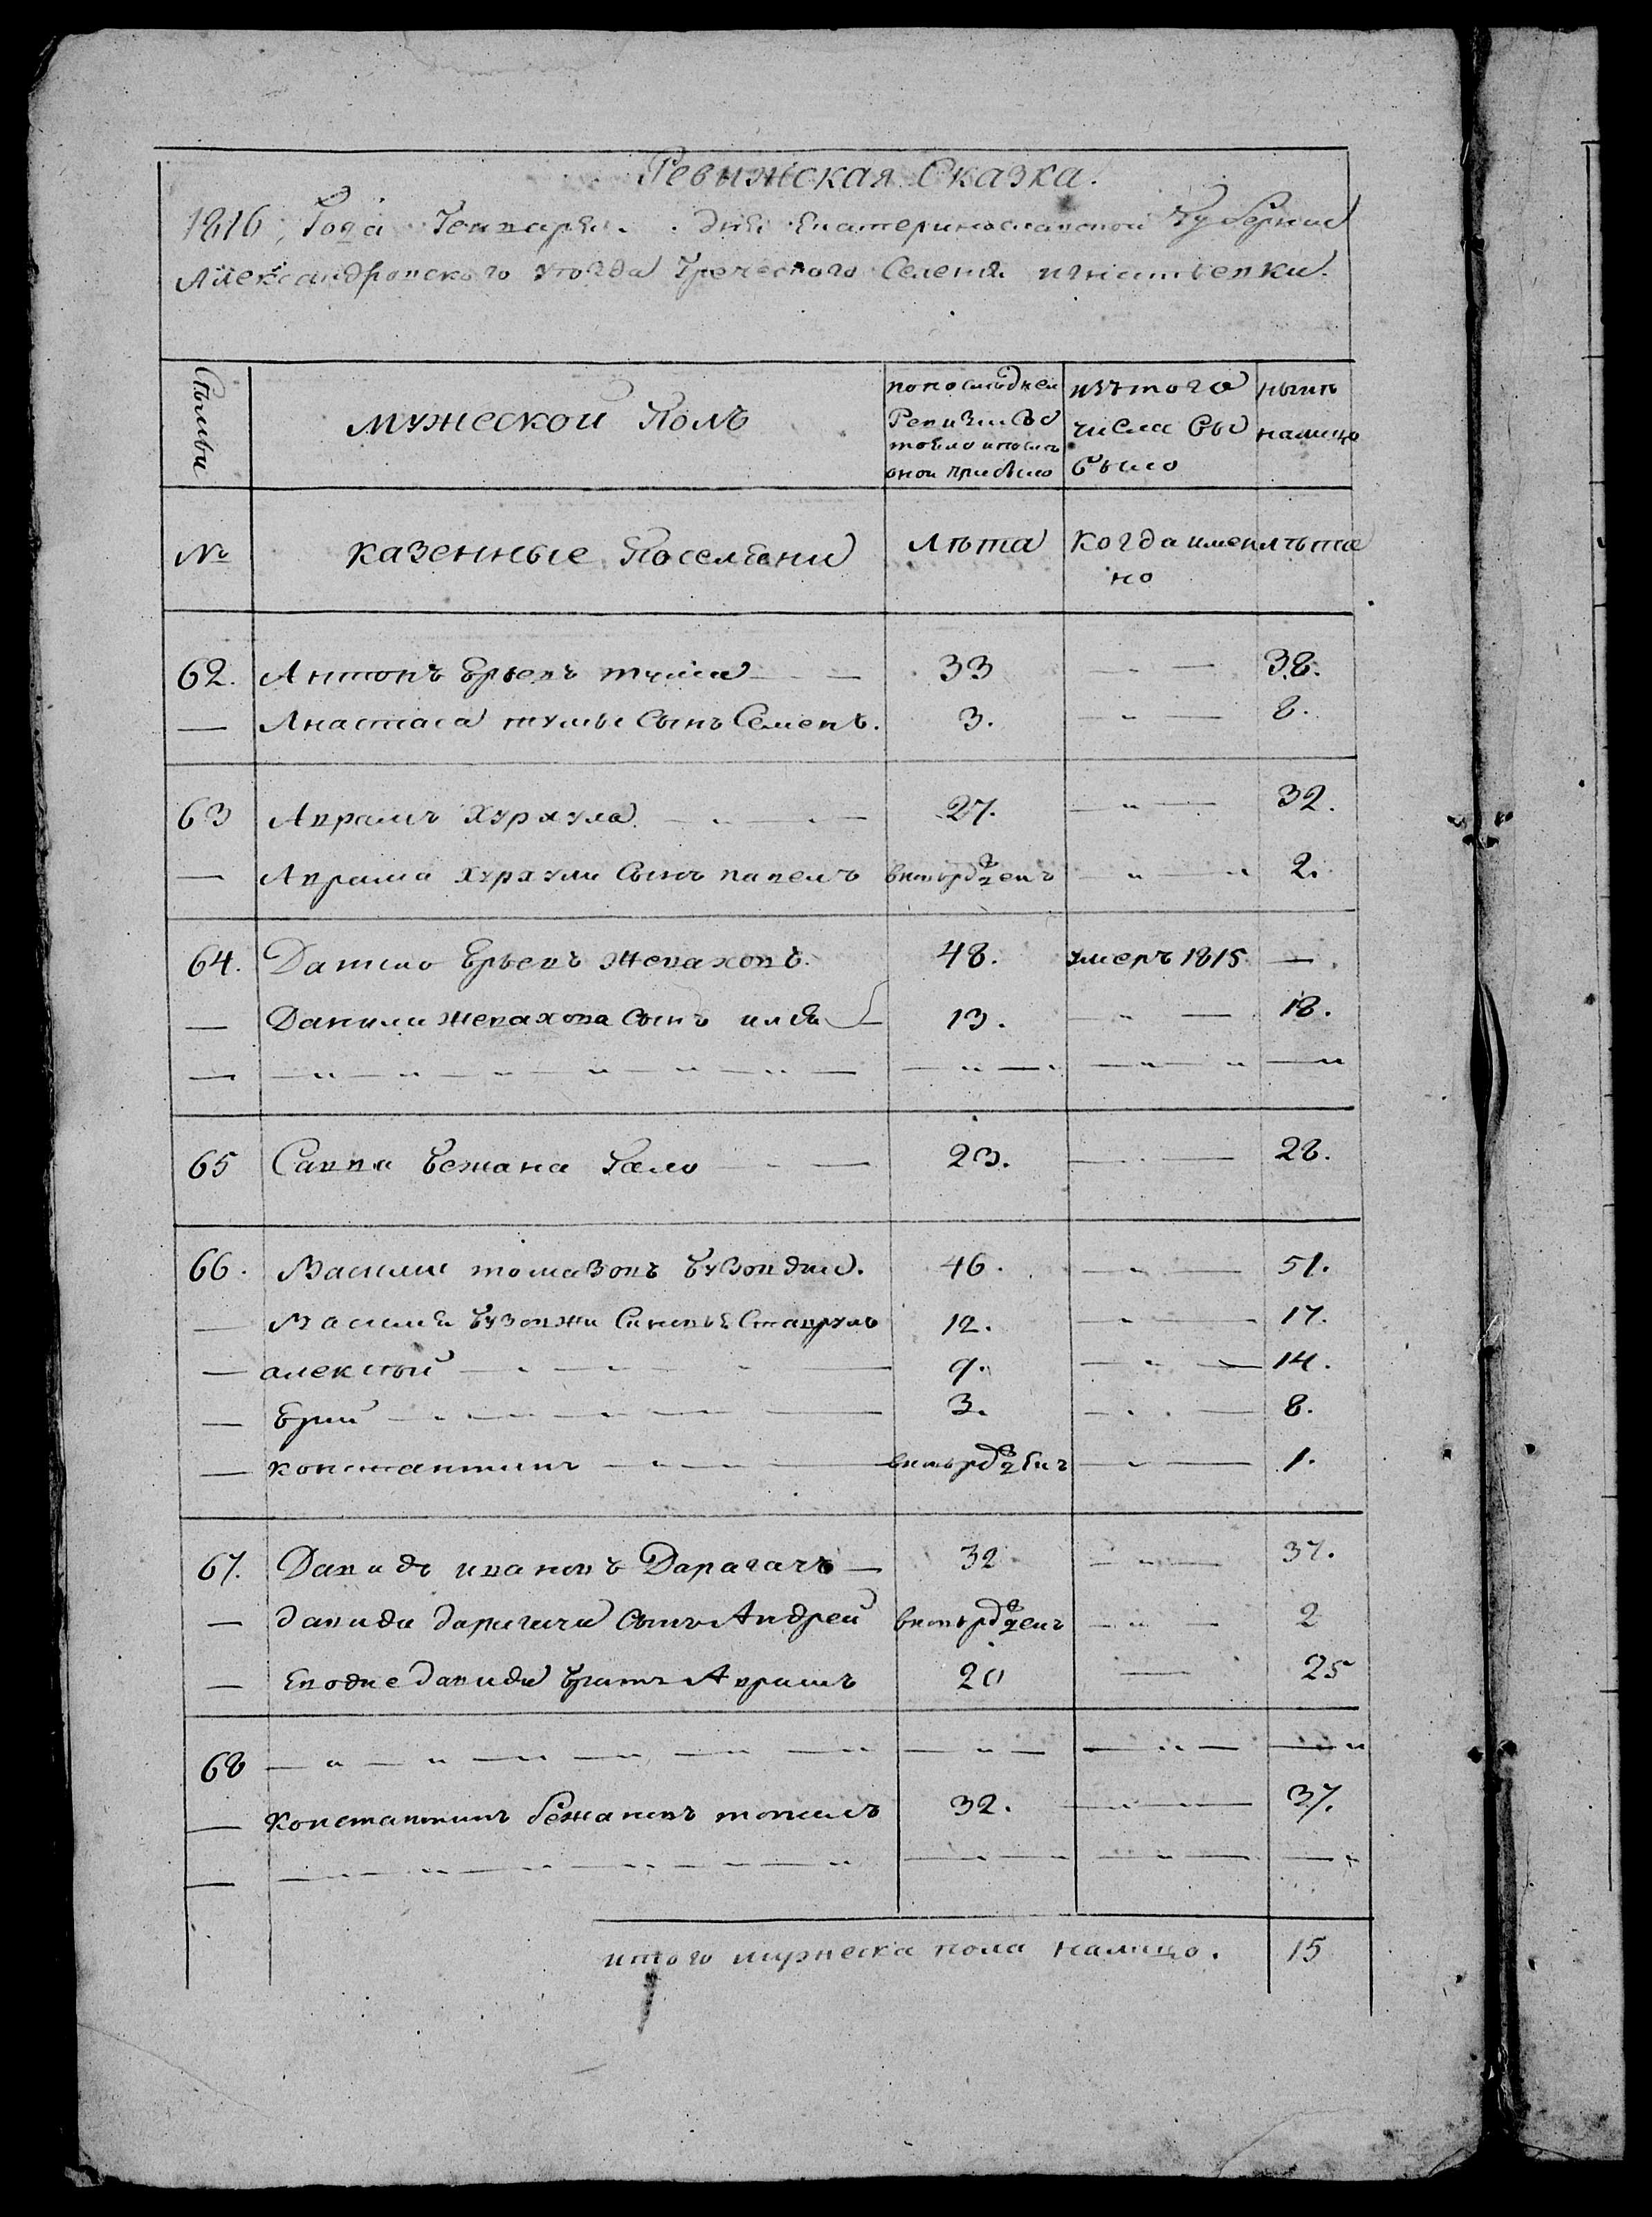 Ревижская Сказка.
1816, Года Генваря. дня Екатеринославской Губернии
Александровского уезда Греческого Селеня игнатьевки.
Семьи
мужеской Полъ
по последнеи Ревизии Состояло и после онои прибыло
изъ того числа выбыло
ныне налицо
№
казенные Поселяни
Лѣта
Когда именно
лѣта
62. Антонъ Юрьевъ тума 33 — 38.
— Анастаса тумы Сынъ Семенъ. 3. — „ — 8.
63 Аврамъ Хурхула 27. — „ — 32.
— Аврама хурхули Сынъ павелъ — „ — „ 2.
64. Данило Юрьевъ Жевахопъ. 48. умеръ 1815 —.
— Данили жевахова сынъ илья — 13. — „ — 18.
65 Савва Бежана Гало 23. — 28.
66. Василий томазовъ 46. — „ — 51.
— Василия 12. — „ — 17.
— алексѣй 9. — „ — 14.
— Юрий 3. — „ — 8.
— константинъ — „ — 1.
67. Давидъ ивановъ Дарагачъ — 32 — „ — 37.
— давида дарагача Сынъ Андрей — „ — 2
— Давида братъ Аврамъ 20 — 25
68 — „ — „ —
— Константинъ бежановъ 32. — „ — 37.
итого мужеска пола налицо. 15